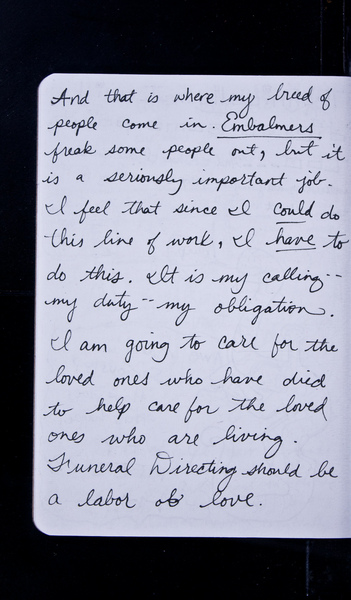 And that is where my breed of
people come in. Embalmers
freak some people out, but it
is a seriously important job.
I feel that since I could do
this line of work, I have to
do this. It is my calling --
my duty -- my obligation.
I am going to care for the
loved ones who have died
to help care for the loved
ones who are living.
Funeral Directing should be
a labor of love.